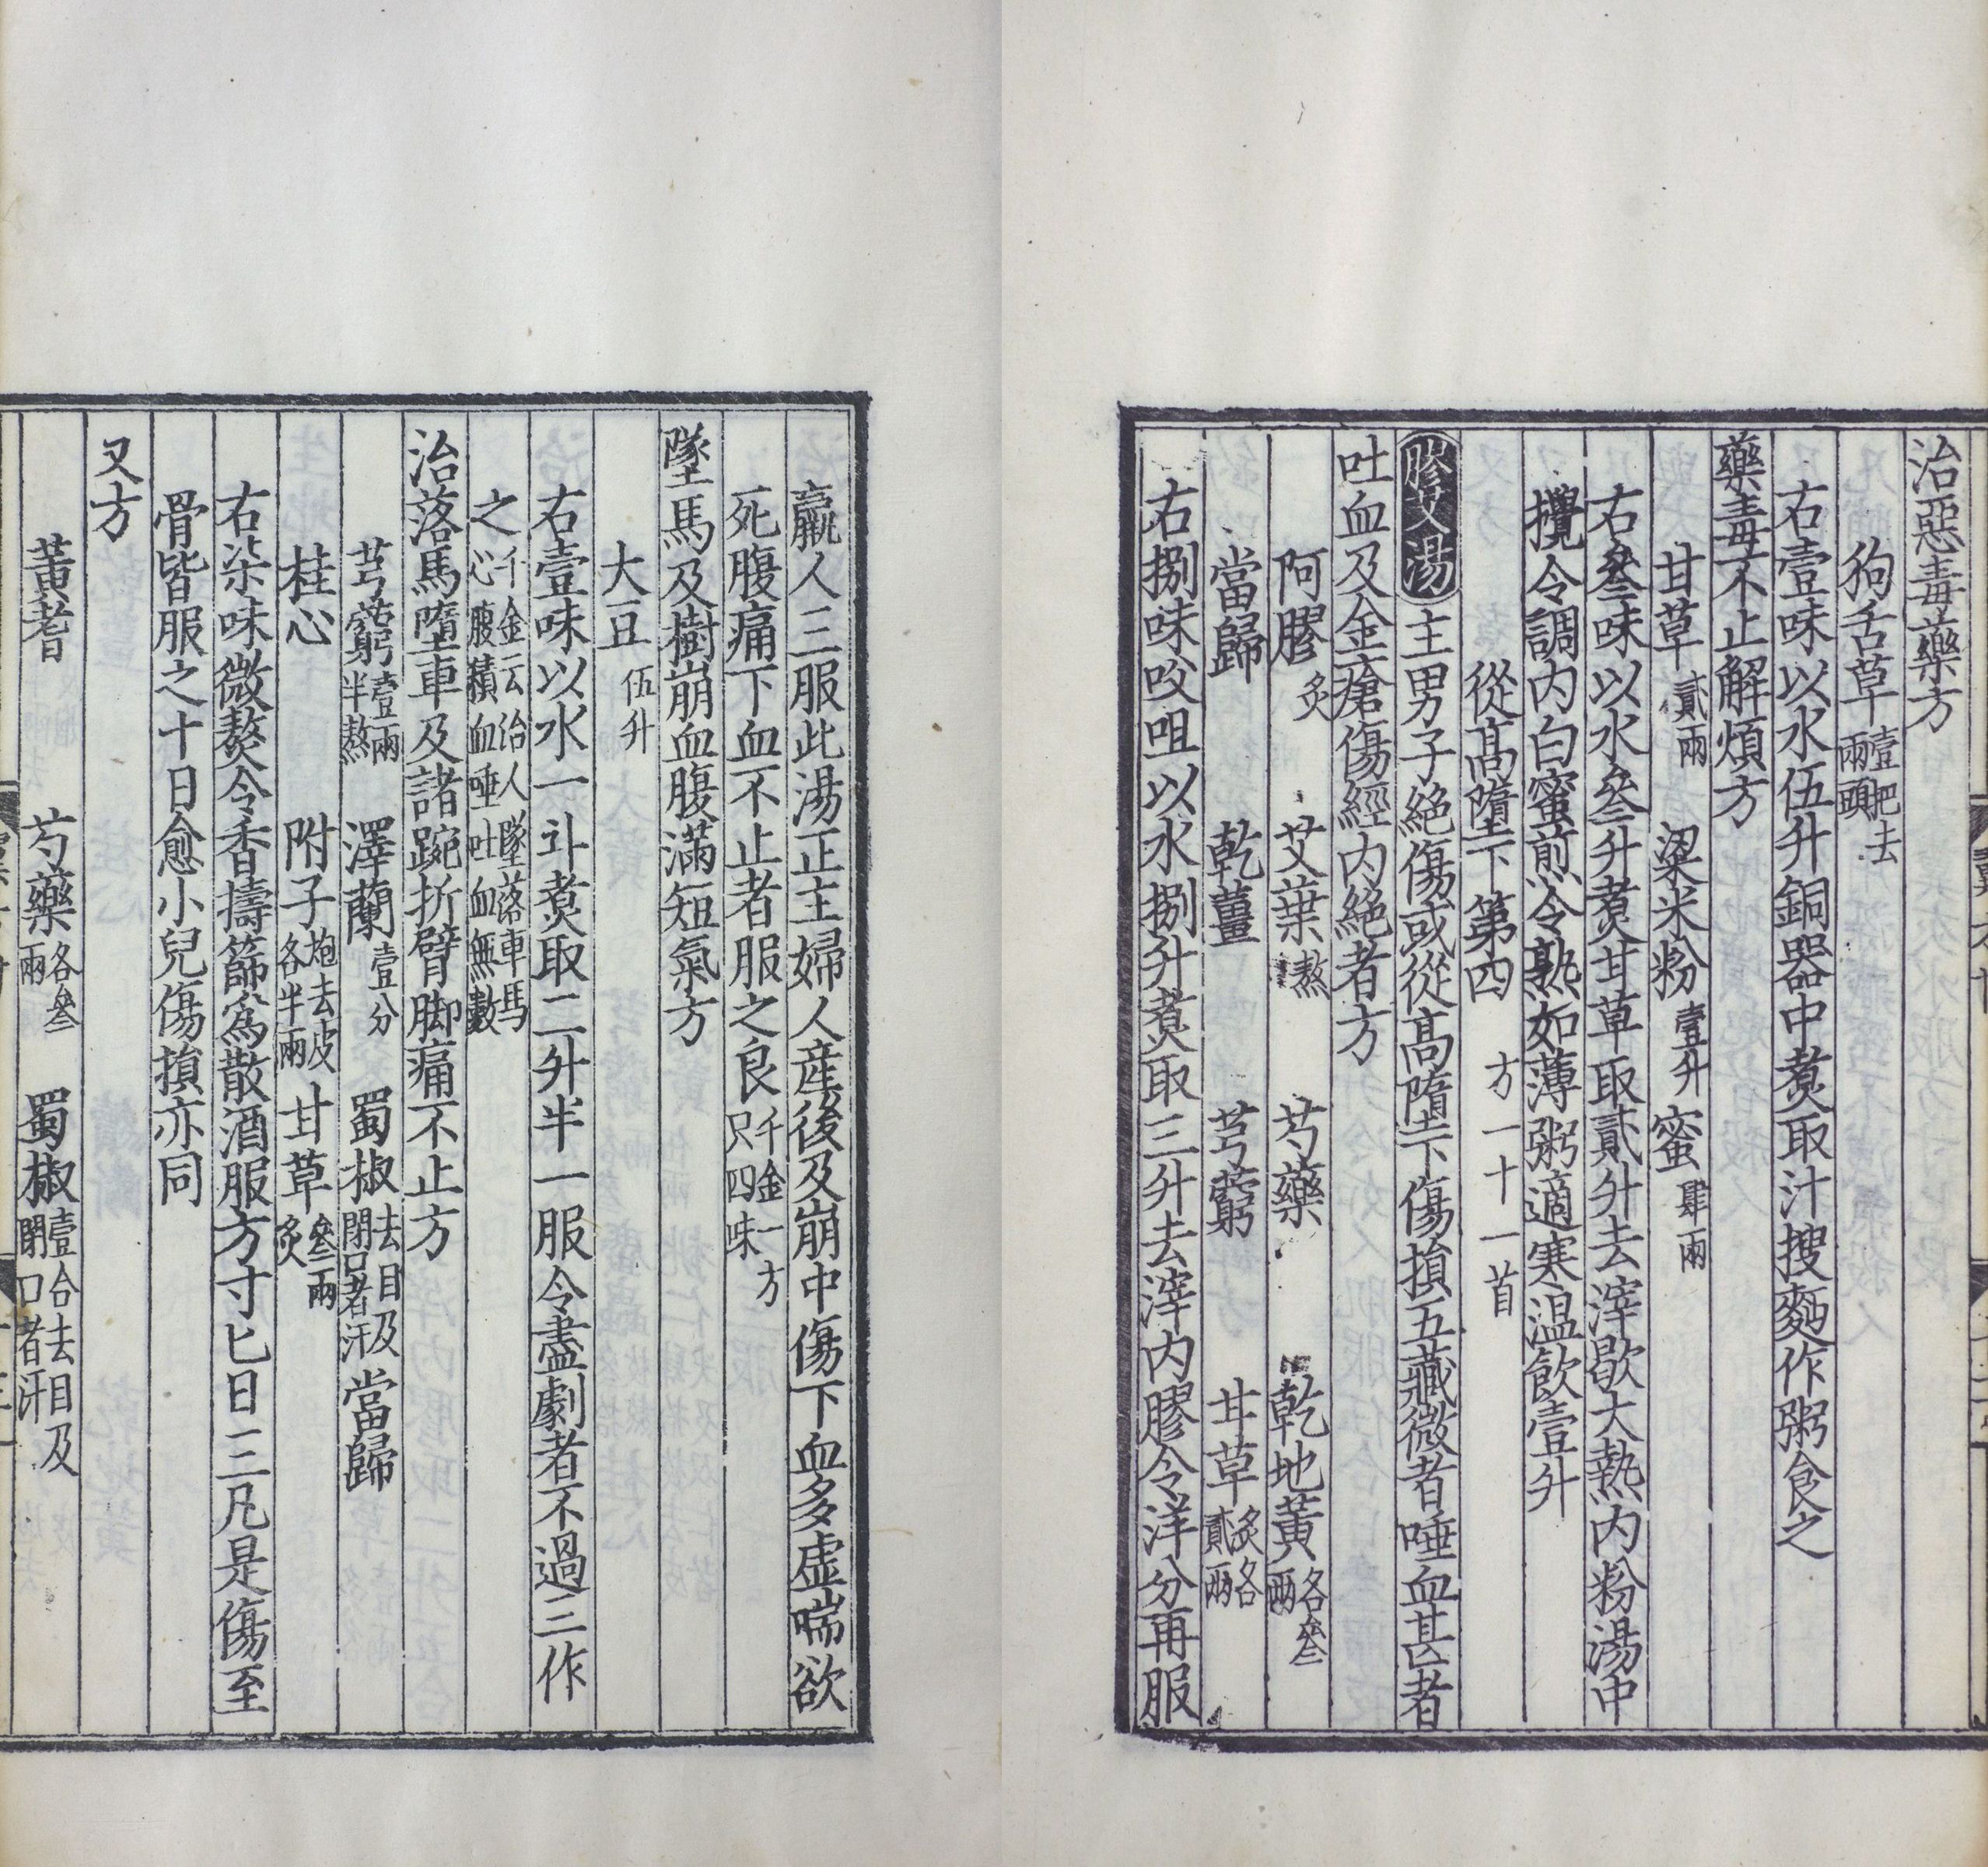 治惡毒藥方
狗舌草壹把去兩頭
右壹味以水伍升銅器中煑取汁搜麪作粥食之
藥毒不止解煩方
甘草貳兩 粱米粉壹升 蜜肆兩
右叁味以水叁升煑甘草取貳升去滓歇大熱内粉湯中
攪令調内白蜜煎令熟如薄粥適寒温飲壹升
從髙墮下第四 方一十一首
膠艾湯主男子絶傷或從髙墮下傷損五藏微者唾血甚者
吐血及金瘡傷經内絶者方
阿膠炙 艾葉熬 芍藥 乾地黃各叁兩
當歸 乾薑 芎藭 甘草炙各貳兩
右捌味㕮咀以水捌升煑取三升去滓内膠令洋分再服
羸人三服此湯正主婦人產後及崩中傷下血多虚喘欲
死腹痛下血不止者服之良千金一方只四味
墜馬及樹崩血腹滿短氣方
大豆伍升
右壹味以水一斗煑取二升半一服令盡劇者不過三作
之千金云治人墜落車馬心腹積血唾吐血無數
治落馬墮車及諸踠折臂脚痛不止方
芎藭壹兩半熬 澤蘭壹分 蜀椒去目及閉口者汗 當歸
桂心 附子炮去皮各半兩 甘草叁兩炙
右柒味微熬令香擣篩為散酒服方寸匕日三凡是傷至
骨皆服之十日愈小兒傷損亦同
又方
黃耆 芍藥各叁兩 蜀椒壹合去目及閉口者汗